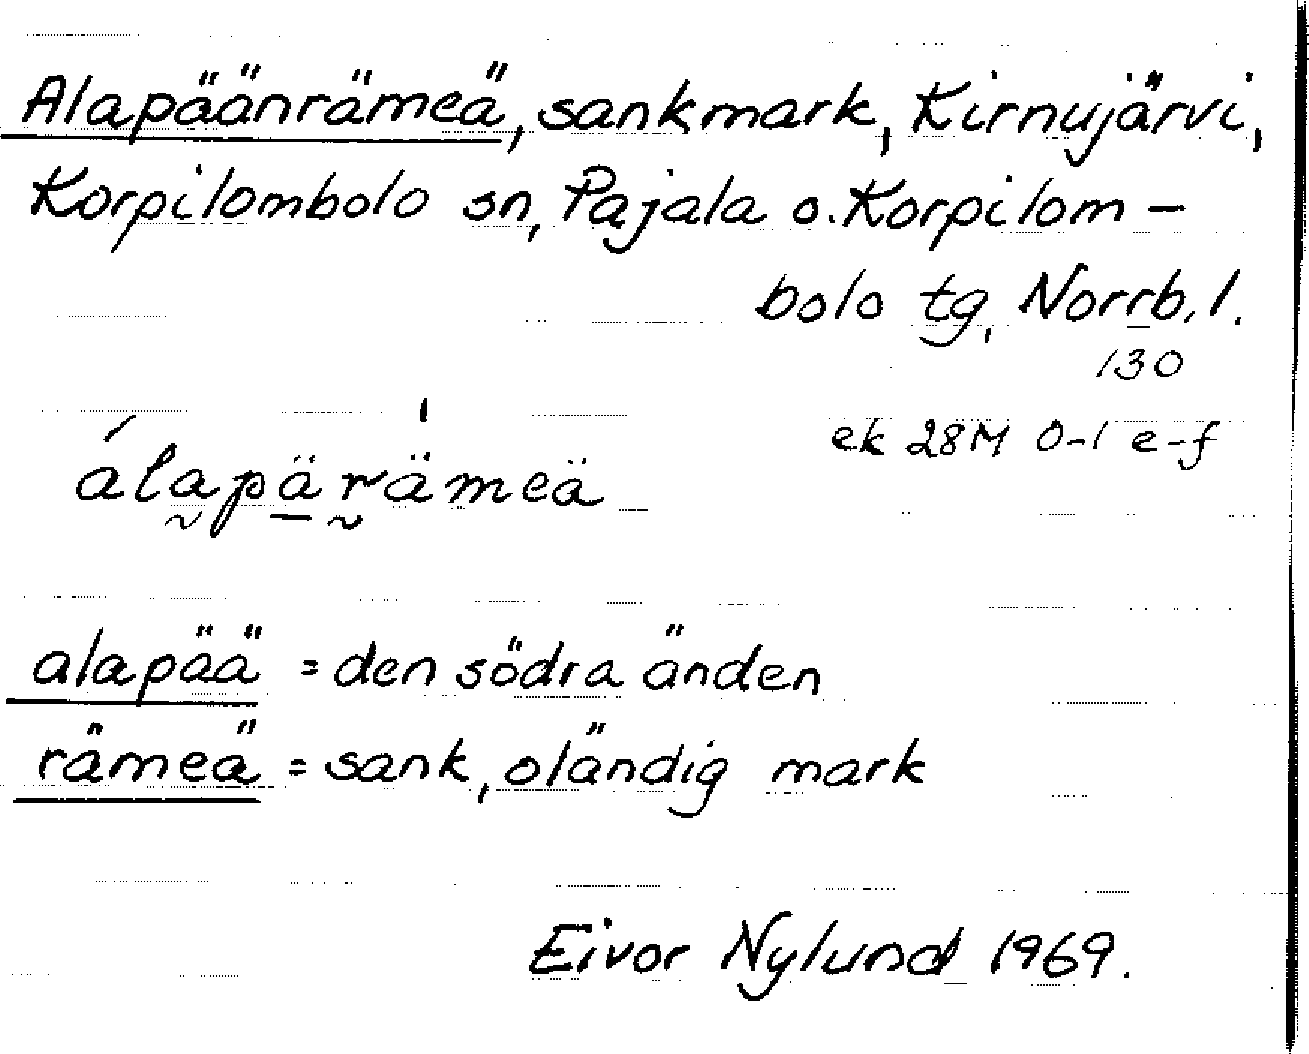 Alapäänrämeä, sankmark, Kirnujärvi,
Korpilombolo sn, Pajala o. Korpilom-
bolo tg, Norrb. l.
130
ek 28M 0-1 e-f
álapärämeä
alapää = den södra änden
rämeä = sank, oländig mark
Eivor Nylund 1969.